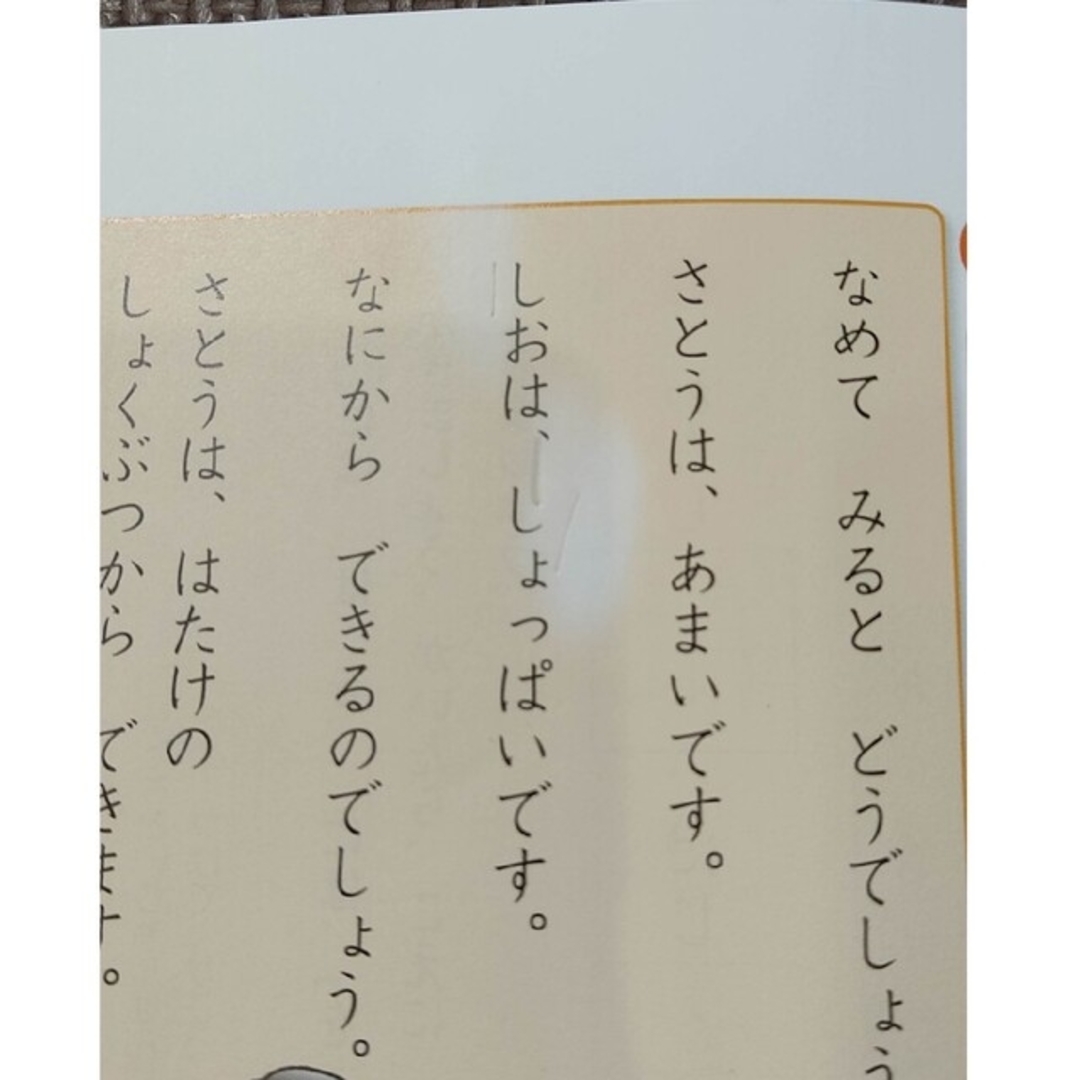 なめて　みると　どうでしょう
さとうは、あまいです。
しおは、しょっぱいです。
なにから　できるのでしょう。
さとうは、はたけの
しょくぶつから　できます。